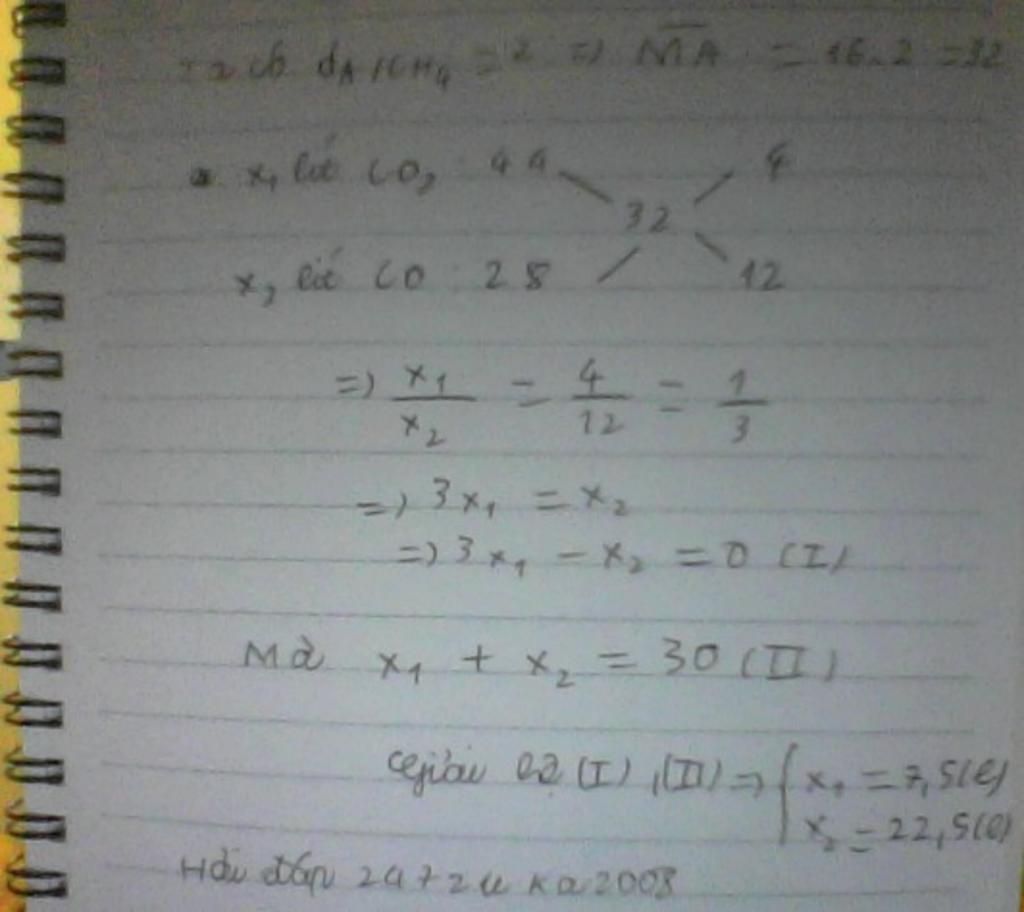 Ta có dA/CH4 = 2 => M̅A = 16.2 = 32
x1 lít CO2 44 4
32
x2 lít CO 28 12
=> x1/x2 = 4/12 = 1/3
=> 3x1 = x2
=> 3x1 - x2 = 0 (I)
Mà x1 + x2 = 30 (II)
Giải hệ (I), (II) => { x1 = 7,5(l)
x2 = 22,5(l)
Hỏi đáp 247